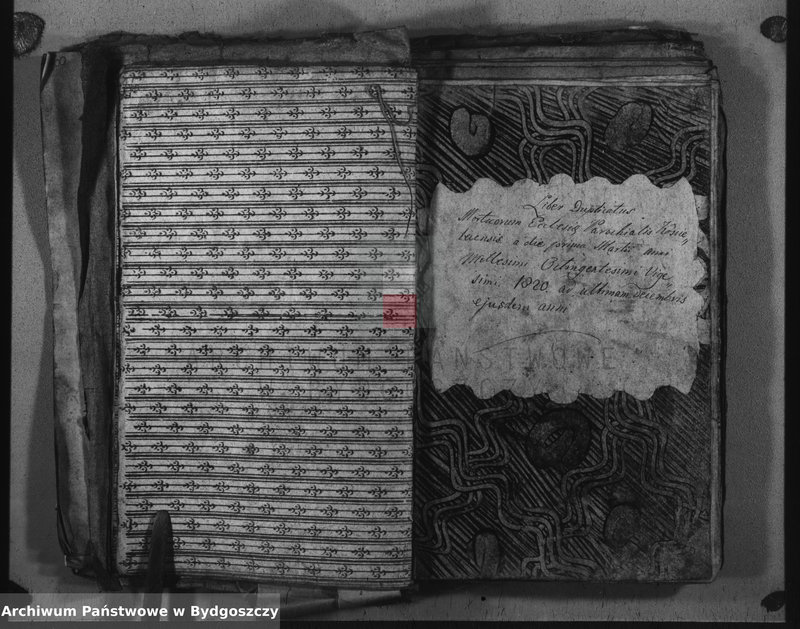 Liber Duplicatus
Mortuorum Ecclesiæ Parochialis
a die prima Martii anni
Millesimi Octingentesimi Vige
simi 1820 ad ultimam Decembris
ejusdem anni
ARCHIWUM PAŃSTWOWE
Archiwum Państwowe w Bydgoszczy